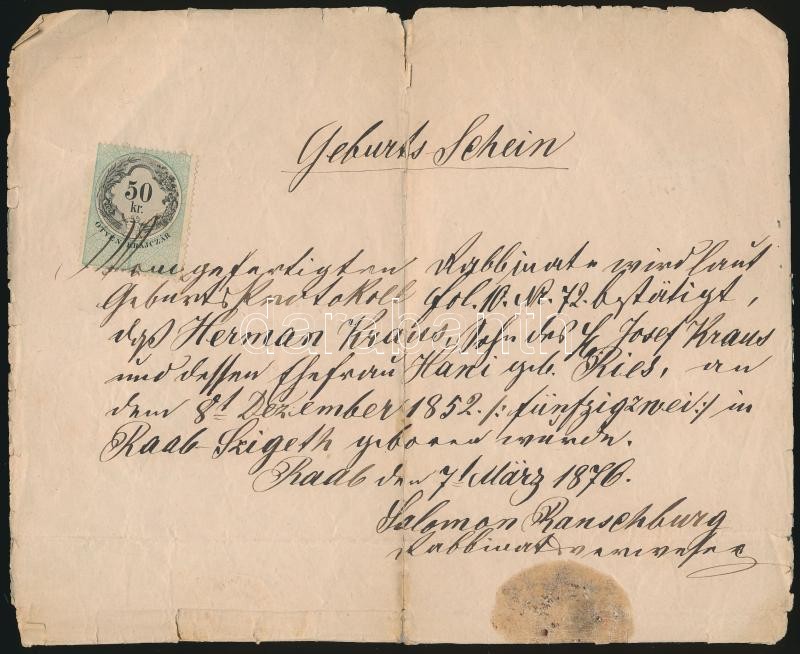 Geburts-Schein
50
kr.
ÖTVEN KRAJCZÁR
Vom gefertigten Rabbinate wird laut
Geburts Protokoll fol. 10. Nr. 72. bestätigt,
daß Herman Kraus, Sohn des H. Josef Kraus
und dessen Ehefrau Hani geb. Ries, an
dem 8t Dezember 1852. /: fünfzigzwei :/ in
Raab-Szigeth geboren wurde.
Raab den 7t März 1876.
Salomon Ranschburg
Rabbinatsverweser
darabanth